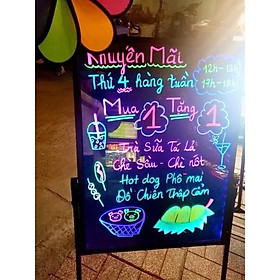 Khuyến Mãi
Thứ 4 hàng tuần
12h - 13h
17h - 18h
Mua 1 Tặng 1
Trà Sữa Tá Lả
Chè Sầu - Chè nốt
Hot dog Phô mai
Đồ Chiên Thập Cẩm